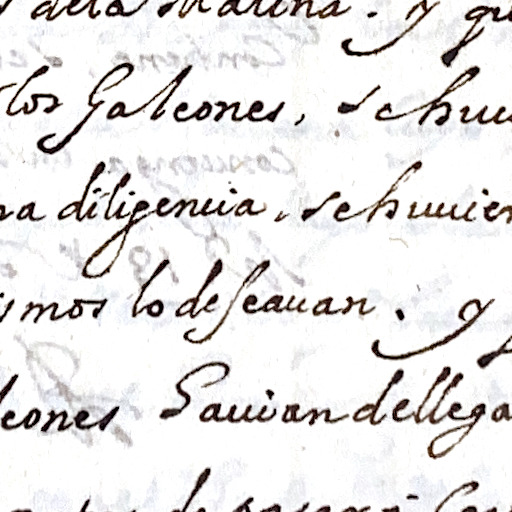 dela Marina. y qu
los Galeones, se huui
na diligencia, se huuier
smos lo deseauan. y
eones hauian de llega